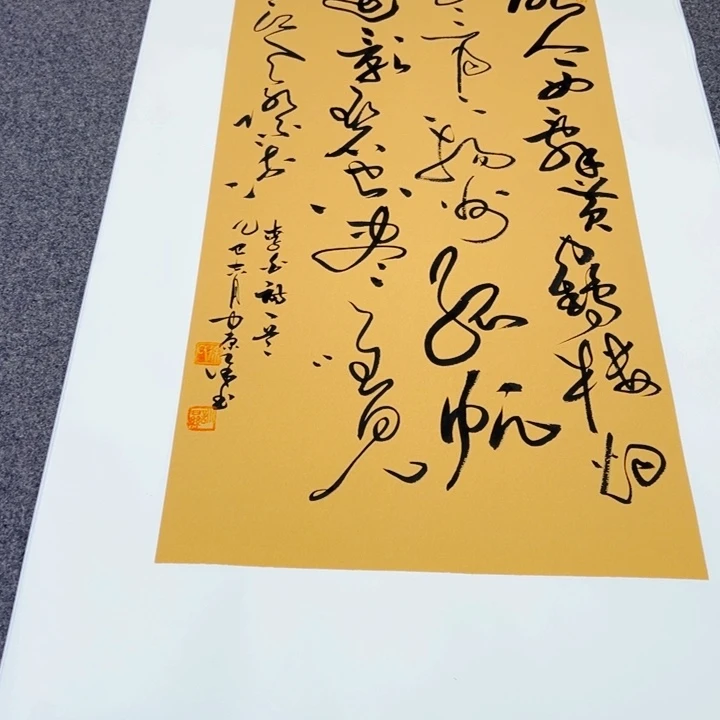 故人西辭黃鶴樓烟
三月下揚州孤帆
遠影碧空盡唯見
江天際流
李白詩一首
乙巳六月中原王書